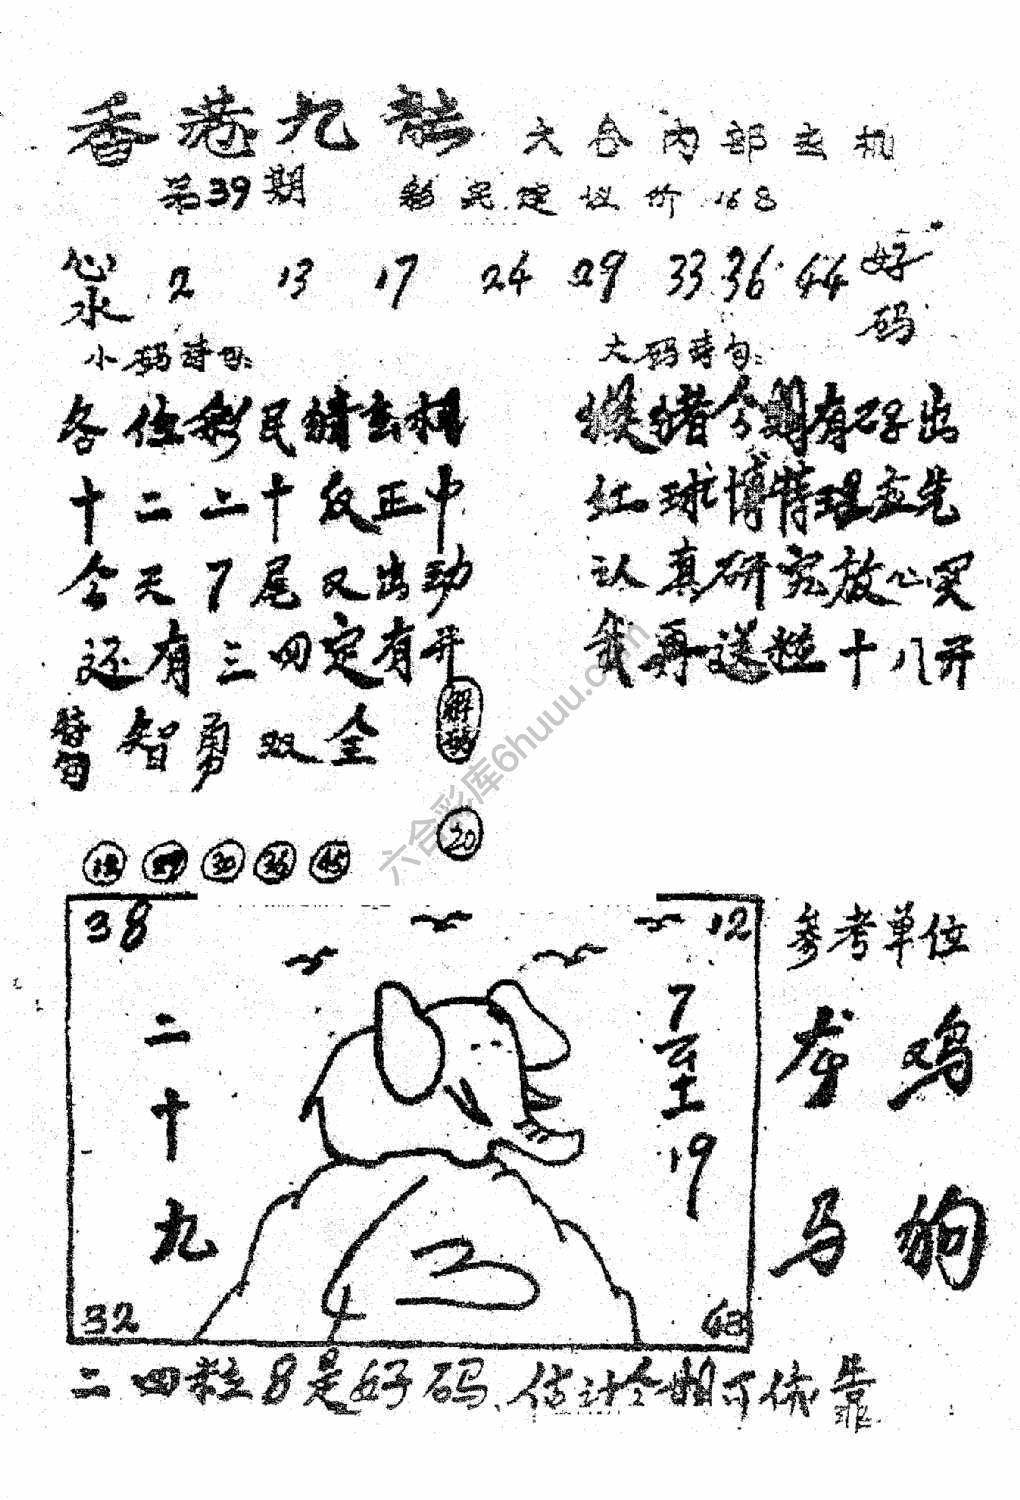 香港九龍 六合内部玄机
第39期 彩民建议价168
心水 2 13 17 24 29 33 36 44 好码
小码诗句: 大码诗句:
各位彩民猜玄机 猴猪今期有码出
十二二十反正中 红球博特理应先
今天7尾又出动 认真研究放心买
还有三四定有开 我再送粒十八开
特句 智勇双全 解码
20
18 30 36 45
38 12 参考单位
二十九 7至19
龙 鸡
马 狗
32 43
二四粒8是好码 估计今期可依靠
六合彩库6huuu.com